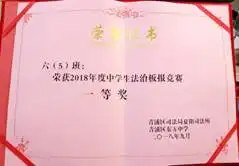 荣誉证书
六（5）班：
荣获2018年度中学生法治板报竞赛
一等奖
青浦区司法局夏阳司法所
青浦区东方中学
二〇一八年九月